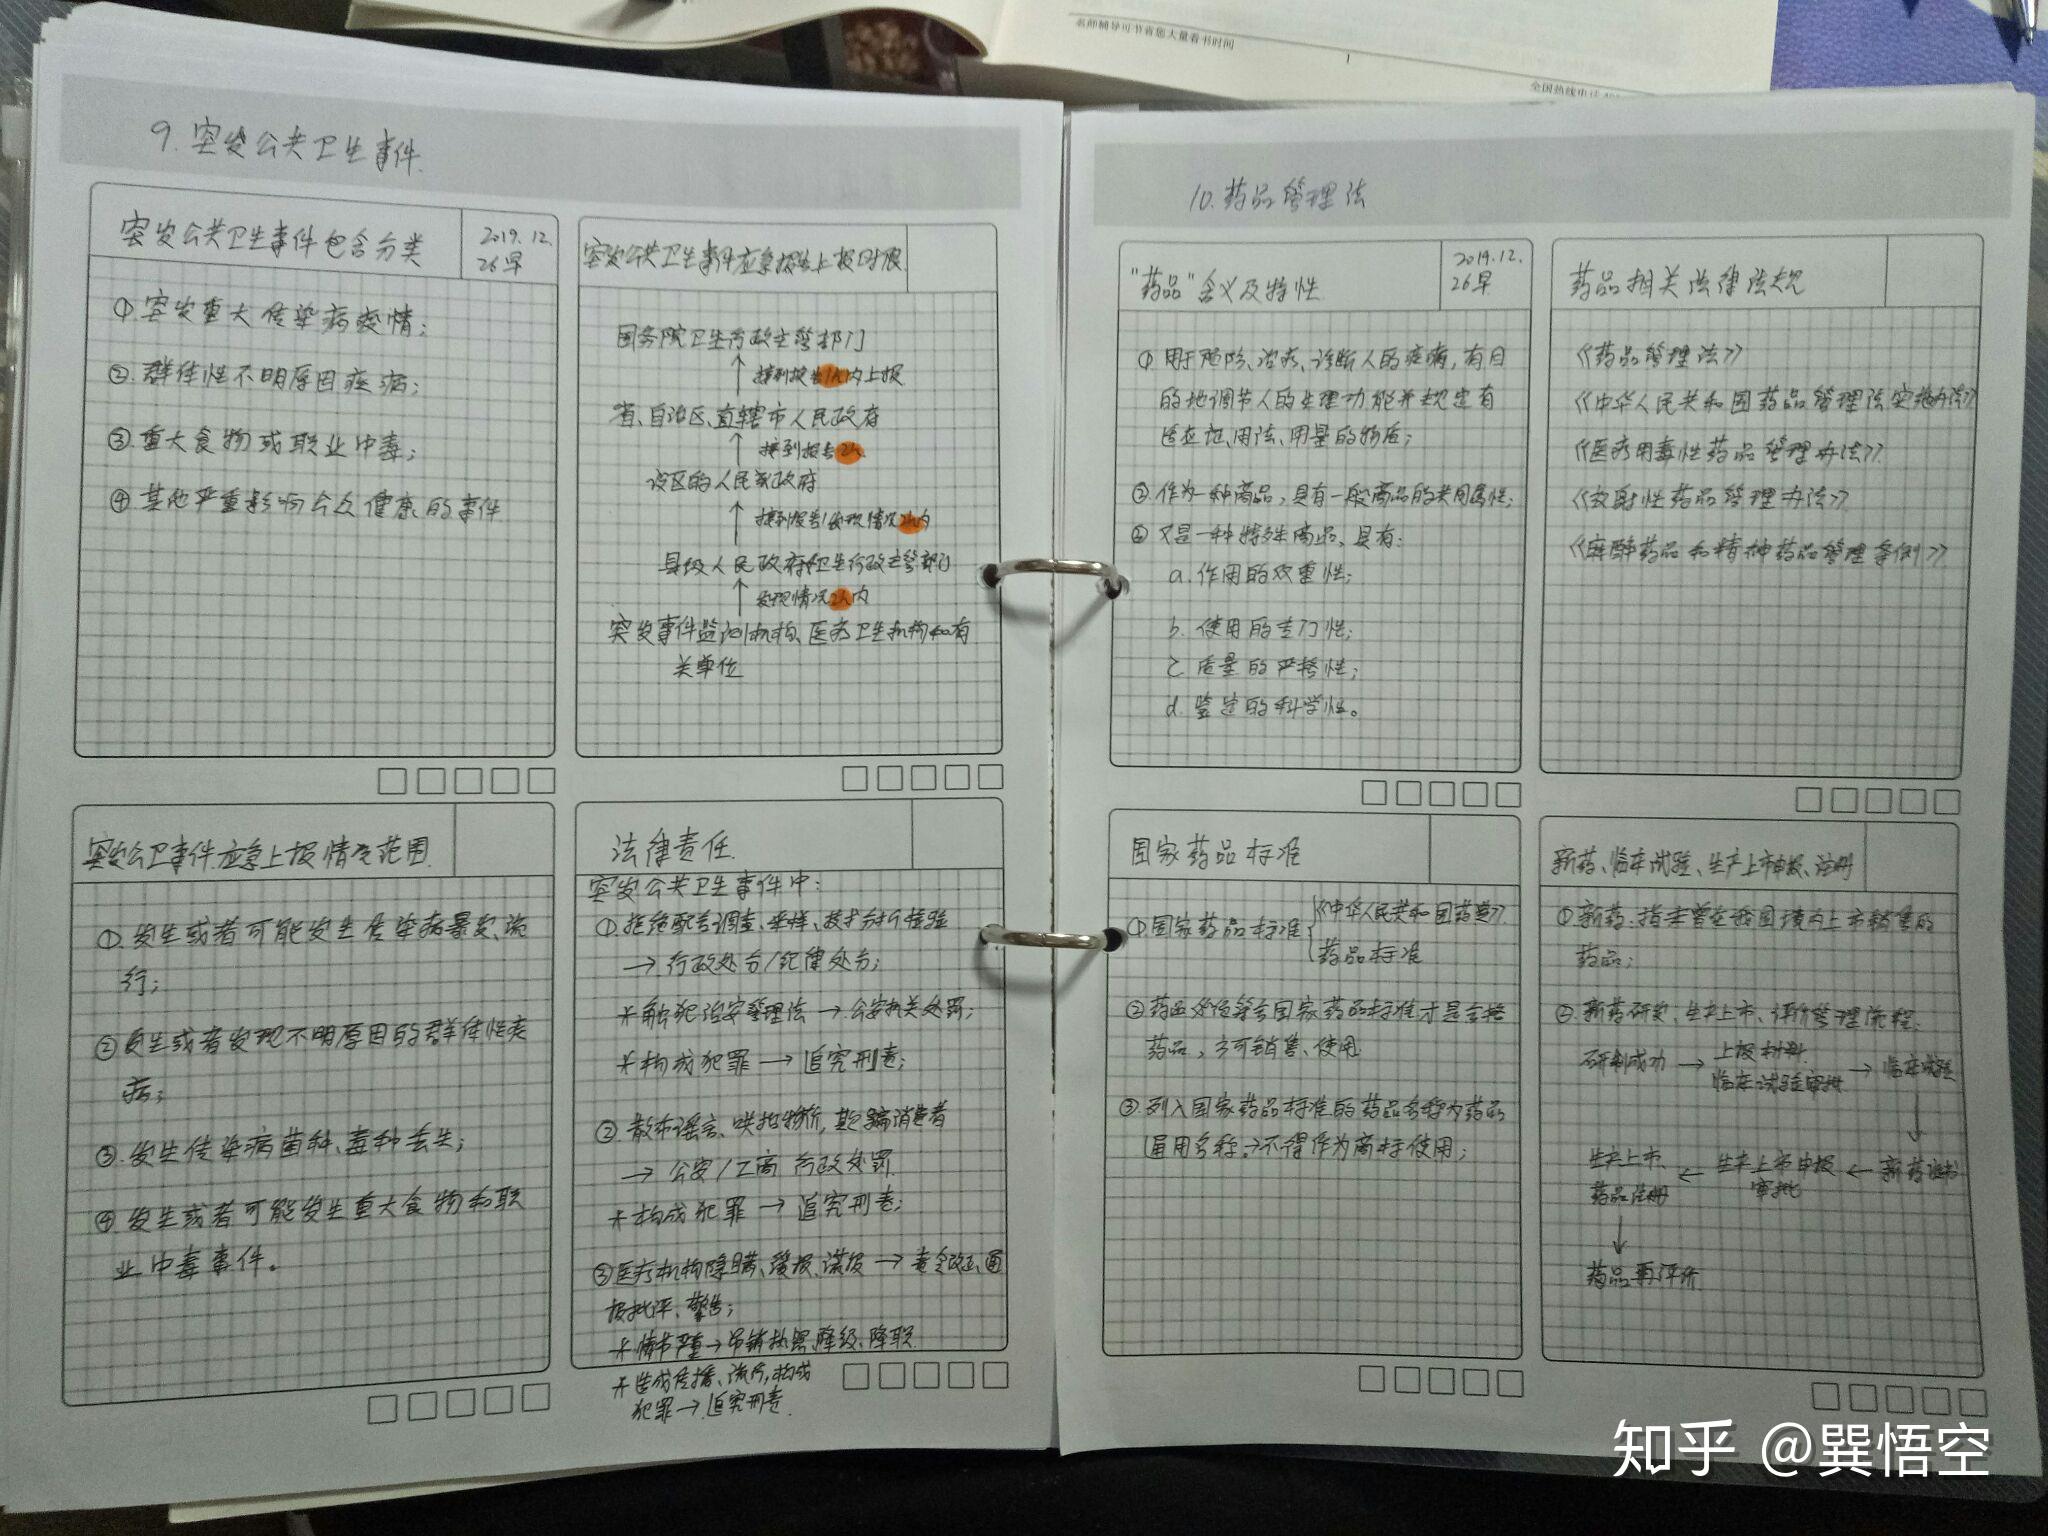 名师辅导可节省您大量看书时间
1
全国热线电话
9. 突发公共卫生事件
突发公共卫生事件包含分类
2019.12.
26早
①突发重大传染病疫情;
②群体性不明原因疾病;
③重大食物或职业中毒;
④其他严重影响公众健康的事件
突发公共卫生事件应急报告上报时限
国务院卫生行政主管部门
↑ 接到报告1h内上报
省、自治区、直辖市人民政府
↑ 接到报告2h
设区的人民政府
↑ 接到报告/发现情况2h内
县级人民政府(卫生行政主管部门)
↑ 发现情况2h内
突发事件监测机构、医疗卫生机构和有
关单位
突发公卫事件应急上报情况范围
①发生或者可能发生传染病暴发、流
行;
②发生或者发现不明原因的群体性疾
病;
③发生传染病菌种、毒种丢失;
④发生或者可能发生重大食物和职
业中毒事件。
法律责任
突发公共卫生事件中:
①拒绝配合调查、采样、技术分析检验
→行政处分/纪律处分;
*触犯治安管理法→公安机关处罚;
*构成犯罪→追究刑责;
②散布谣言、哄抬物价,欺骗消费者
→公安/工商 行政处罚.
*构成犯罪→追究刑责;
③医疗机构隐瞒、缓报、谎报→责令改正、通
报批评、警告;
*情节严重→吊销执照、降级、降职.
*造成传播、流行,构成
犯罪→追究刑责.
10. 药品管理法
"药品"含义及特性
2019.12.
26早
①用于预防、治疗、诊断人的疾病,有目
的地调节人的生理功能并规定有
适应证、用法、用量的物质;
②作为一种商品,具有一般商品的共用属性;
③又是一种特殊商品,具有:
a.作用的双重性;
b.使用的专门性;
c.质量的严格性;
d.鉴定的科学性。
药品相关法律法规
《药品管理法》
《中华人民共和国药品管理法实施办法》
《医疗用毒性药品管理办法》
《放射性药品管理办法》
《麻醉药品和精神药品管理条例》
国家药品标准
①国家药品标准{《中华人民共和国药典》
药品标准
②药品必须符合国家药品标准才是合格
药品,才可销售、使用
③列入国家药品标准的药品名称为药品
通用名称→不得作为商标使用;
新药、临床试验、生产上市申报、注册
①新药:指未曾在我国境内上市销售的
药品;
②新药研发、生产上市、评价管理流程:
研制成功→上报材料 临床试验审批→临床试验
↓
生产上市、药品注册←生产上市申报 审批←新药证书
↓
药品再评价
知乎 @巽悟空